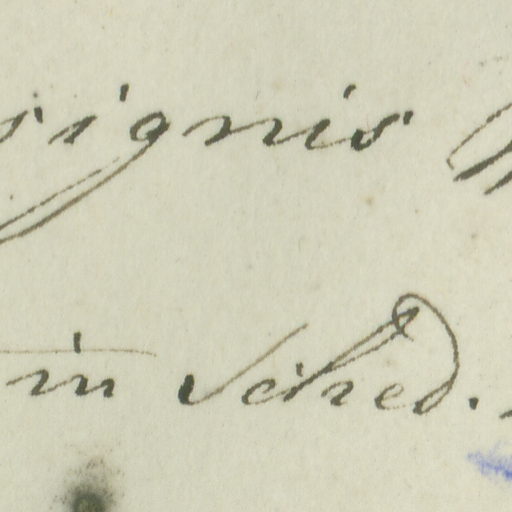 signis
in Sched.